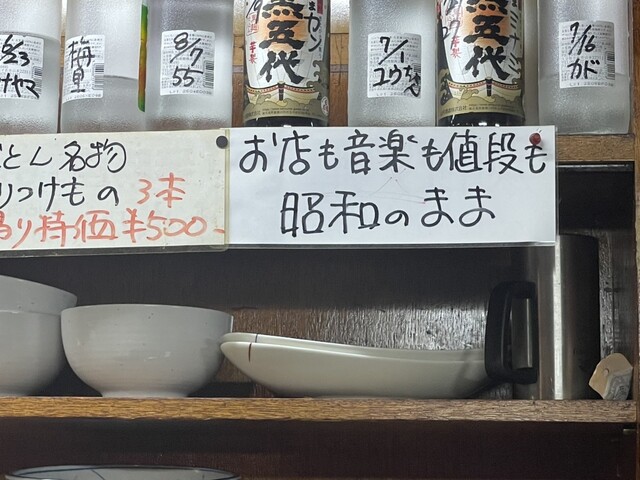 6/23
ナヤマ
梅里
8/7
55
ガン
黒五代
7/1
ユウちゃん
ミナミ
黒五代
7/16
カド
とん名物
りつけもの 3本
り特価¥500-
お店も音楽も値段も
昭和のまま